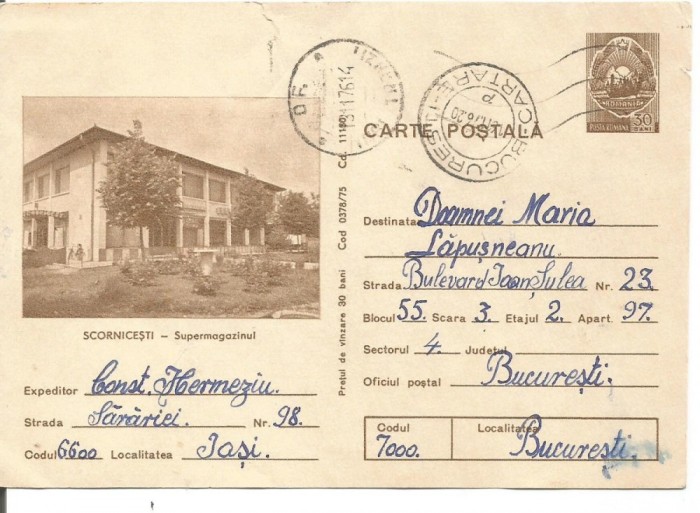 CARTE POSTALĂ
ROMANIA
POSTA ROMANA
30
BANI
BUCURESTI
CARTARE
P
Destinatar Doamnei Maria
Lăpușneanu
Strada Bulevard Ioan Șulea Nr. 23.
Blocul 55. Scara 3. Etajul 2. Apart. 97.
Sectorul 4. Județul
București.
Oficiul poștal
Codul
Localitatea
7000.
București.
Prețul de vînzare 30 bani Cod 0378/75 Cd. 11180
SCORNICEȘTI — Supermagazinul
Expeditor Const. Hermeziu.
Strada Sărăriei. Nr. 98.
Codul 6600 Localitatea Iași.